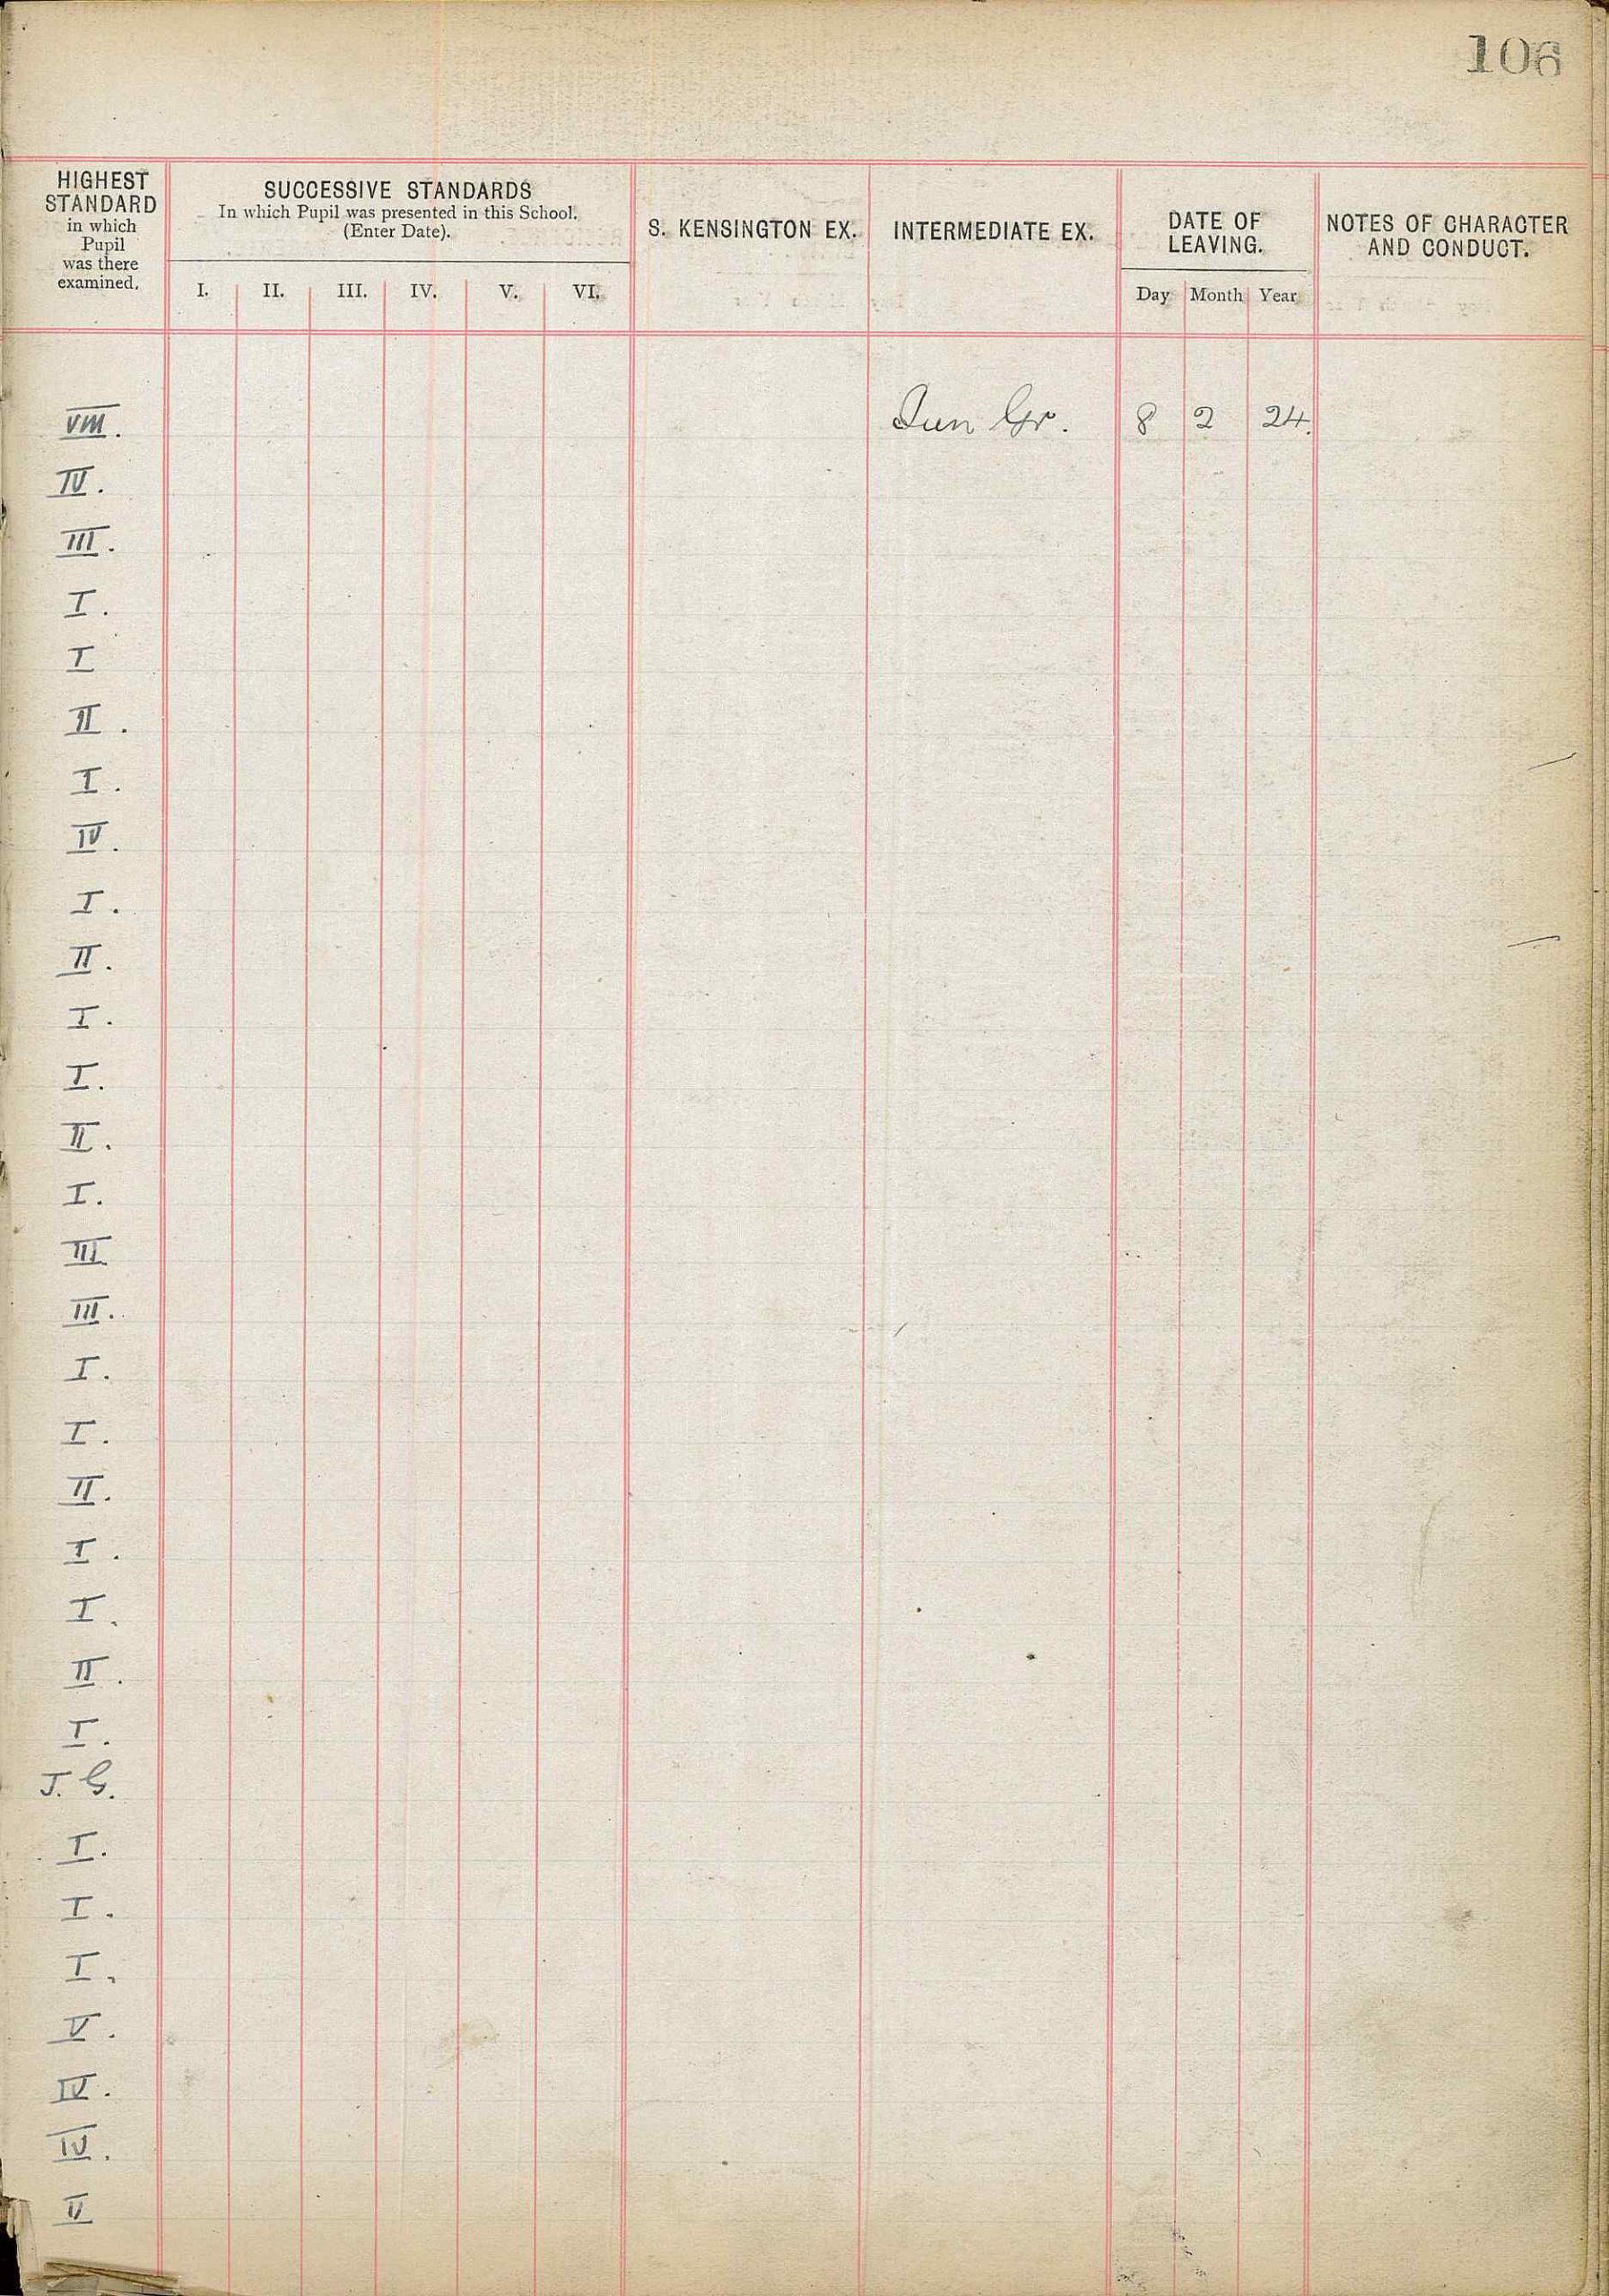 106
HIGHEST STANDARD in which Pupil was there examined.
SUCCESSIVE STANDARDS
In which Pupil was presented in this School.
(Enter Date).
I. II. III. IV. V. VI.
S. KENSINGTON EX.
INTERMEDIATE EX.
DATE OF LEAVING.
Day Month Year
NOTES OF CHARACTER AND CONDUCT.
VIII. Jun Gr. 8 2 24.
IV.
III.
I.
I
II.
I.
IV.
I.
II.
I.
I.
II.
I.
III
III.
I.
I.
II.
I.
I.
II.
I.
J. G.
I.
I.
I.
V.
IV.
IV.
II